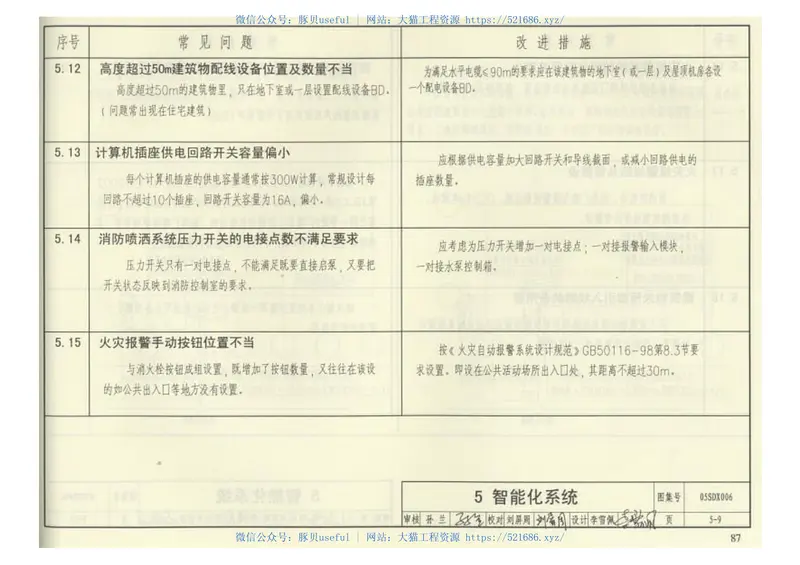 微信公众号：豚贝useful | 网站：大猫工程资源 https://521686.xyz/
序号 常见问题 改进措施
5.12 高度超过50m建筑物配线设备位置及数量不当
高度超过50m的建筑物里，只在地下室或一层设置配线设备BD。
（问题常出现在住宅建筑）
为满足水平电缆≤90m的要求应在该建筑物的地下室（或一层）及屋顶机房各设
一个配电设备BD。
5.13 计算机插座供电回路开关容量偏小
每个计算机插座的供电容量通常按300W计算，常规设计每
回路不超过10个插座，回路开关容量为16A，偏小。
应根据供电容量加大回路开关和导线截面，或减小回路供电的
插座数量。
5.14 消防喷洒系统压力开关的电接点数不满足要求
压力开关只有一对电接点，不能满足既要直接启泵，又要把
开关状态反映到消防控制室的要求。
应考虑为压力开关增加一对电接点；一对接报警输入模块，
一对接水泵控制箱。
5.15 火灾报警手动按钮位置不当
与消火栓按钮成组设置，既增加了按钮数量，又往往在该设
的如公共出入口等地方没有设置。
按《火灾自动报警系统设计规范》GB50116-98第8.3节要
求设置。即设在公共活动场所出入口处，其距离不超过30m。
5 智能化系统 图集号 05SDX006
审核 孙兰 校对 刘屏周 设计 李雪佩 页 5-9
87
微信公众号：豚贝useful | 网站：大猫工程资源 https://521686.xyz/